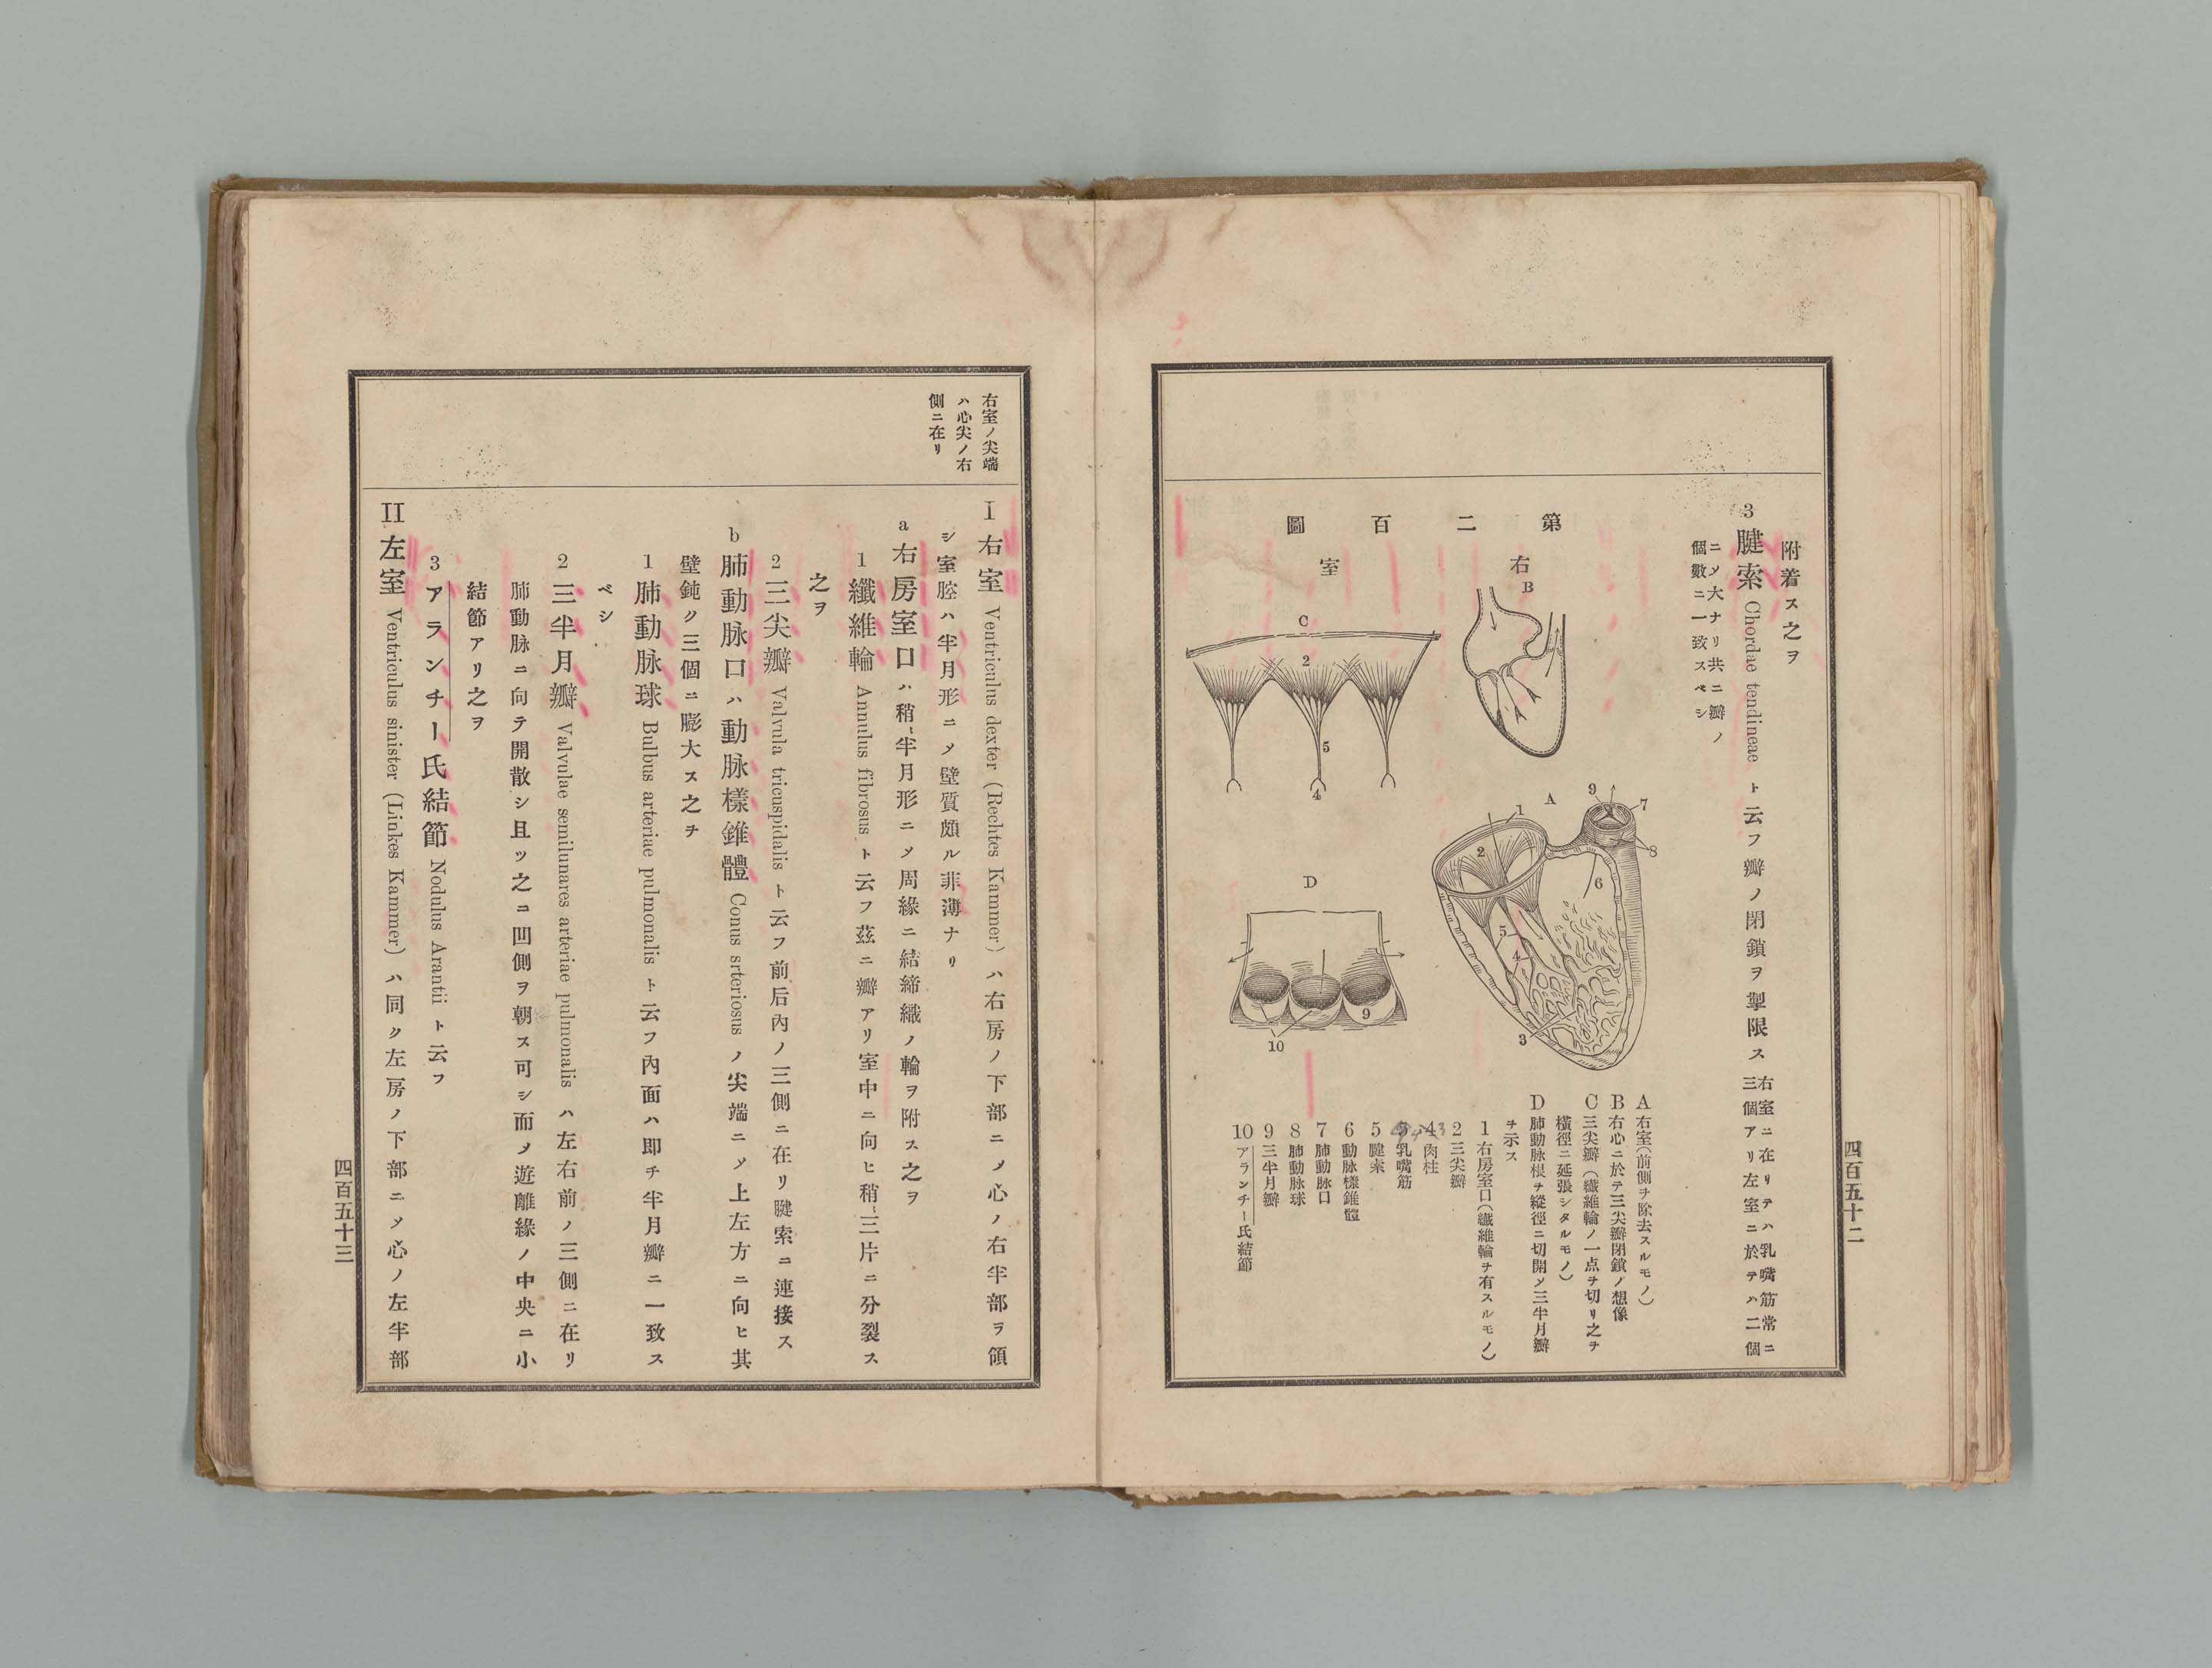 附着ス之ヲ
3 腱索 Chordae tendineae ト云フ瓣ノ閉鎖ヲ掣限ス 右室ニ在リテハ乳嘴筋常ニ
三個アリ左室ニ於テハ二個
ニノ大ナリ共ニ瓣ノ
個數ニ一致スベシ
第二百圖
右室
B
C
2
5
4
A
9
7
1
2
8
6
5
4
3
D
9
10
A 右室(前側チ除去スルモノ)
B 右心ニ於テ三尖瓣閉鎖ノ想像
C 三尖瓣(纖維輪ノ一点チ切リ之チ
橫徑ニ延張シタルモノ)
D 肺動脉根チ縱徑ニ切開ノ三半月瓣
チ示ス
1 右房室口(纖維輪チ有スルモノ)
2 三尖瓣
肉柱
乳嘴筋
5 腱索
6 動脉樣錐體
7 肺動脉口
8 肺動脉球
9 三半月瓣
10 アランチー氏結節
四百五十二
右室ノ尖端
ハ心尖ノ右
側ニ在リ
I 右室 Ventriculus dexter (Rechtes Kammer) ハ右房ノ下部ニノ心ノ右半部ヲ領
シ室腔ハ半月形ニノ壁質頗ル菲薄ナリ
a 右房室口ハ稍〻半月形ニノ周緣ニ結締織ノ輪ヲ附ス之ヲ
1 纖維輪 Annulus fibrosus ト云フ茲ニ瓣アリ室中ニ向ヒ稍〻三片ニ分裂ス
之ヲ
2 三尖瓣 Valvula tricuspidalis ト云フ前后內ノ三側ニ在リ腱索ニ連接ス
b 肺動脉口ハ動脉樣錐體 Conus srteriosus ノ尖端ニノ上左方ニ向ヒ其
壁鈍ク三個ニ膨大ス之チ
1 肺動脉球 Bulbus arteriae pulmonalis ト云フ內面ハ即チ半月瓣ニ一致ス
ベシ
2 三半月瓣 Valvulae semilunares arteriae pulmonalis ハ左右前ノ三側ニ在リ
肺動脉ニ向テ開散シ且ツ之ニ凹側ヲ朝ス可シ而ノ遊離緣ノ中央ニ小
結節アリ之ヲ
3 アランチー氏結節 Nodulus Arantii ト云フ
II 左室 Ventriculus sinister (Linkes Kammer) ハ同ク左房ノ下部ニノ心ノ左半部
四百五十三